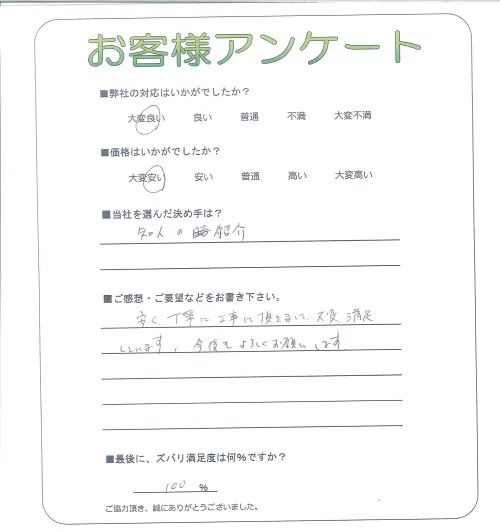 お客様アンケート
■弊社の対応はいかがでしたか？
大変良い 良い 普通 不満 大変不満
■価格はいかがでしたか？
大変安い 安い 普通 高い 大変高い
■当社を選んだ決め手は？
知人の紹介
■ご感想・ご要望などをお書き下さい。
安く、丁寧に工事して頂きまして、大変満足
しています。今後もよろしくお願いします。
■最後に、ズバリ満足度は何%ですか？
100 %
ご協力頂き、誠にありがとうございました。